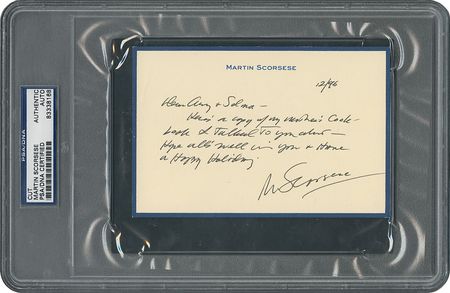 MARTIN SCORSESE
12/96
& Selma —
Here's a copy of my mother's Cook-
book I Talked To you about —
Hope all's well with you & Have
a Happy Holiday
M Scorsese
CUT
MARTIN SCORSESE
PSA/DNA CERTIFIED
AUTHENTIC
AUTO
83338168
PSA/DNA